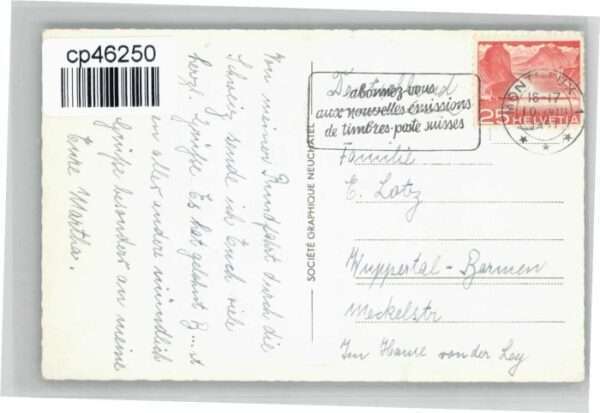 cp46250
Von meiner Rundfahrt durch die
Schweiz sende ich Euch viele
herzl. Grüße. Es hat gelohnt
en aller andere mündlich
Grüße besonders an meine
Eure Martha.
SOCIÉTÉ GRAPHIQUE NEUCHÂTEL
Deutschland
abonnez-vous
aux nouvelles émissions
de timbres-poste suisses
MONTREUX
18-17
25 HELVETIA
Familie
E. Lotz
Wuppertal-Barmen
Meckelstr
Im Hause von der Ley